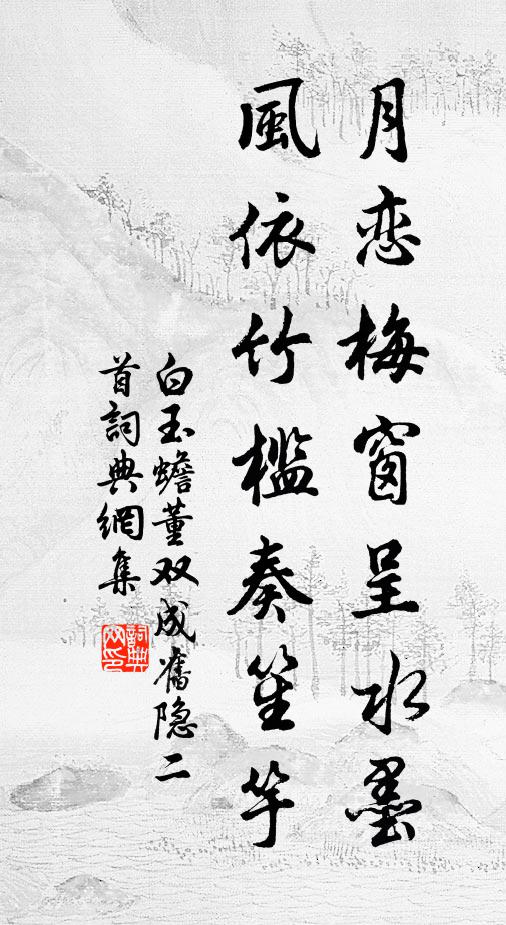 月恋梅窗呈水墨
風依竹槛奏笙竽
白玉蟾董双成舊隐二
首詞典網集
詞典网印